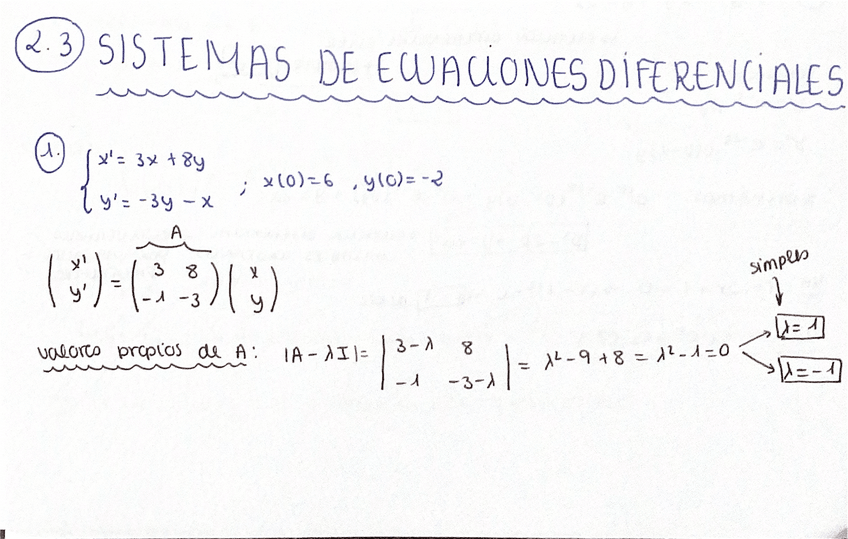 2.3 SISTEMAS DE ECUACIONES DIFERENCIALES
1. { x' = 3x + 8y
y' = -3y - x ; x(0)=6 , y(0)=-2
A
( x' y' ) = ( 3 8 -1 -3 ) ( x y )
simples
valores propios de A: |A - λI| = | 3-λ 8 -1 -3-λ | = λ² - 9 + 8 = λ² - 1 = 0
λ = 1
λ = -1